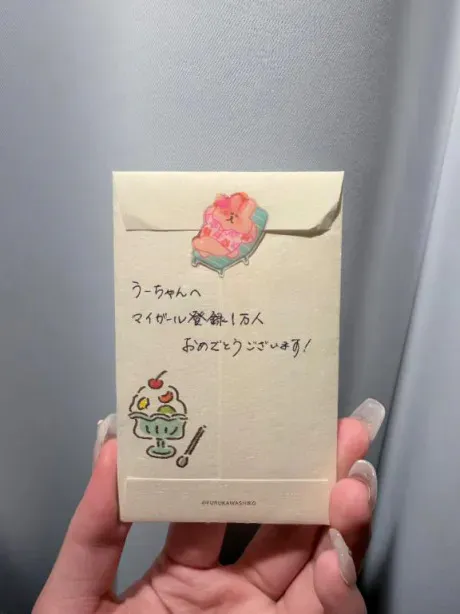 うーちゃんへ
マイガール登録1万人
おめでとうございます!
©FURUKAWASHIKO